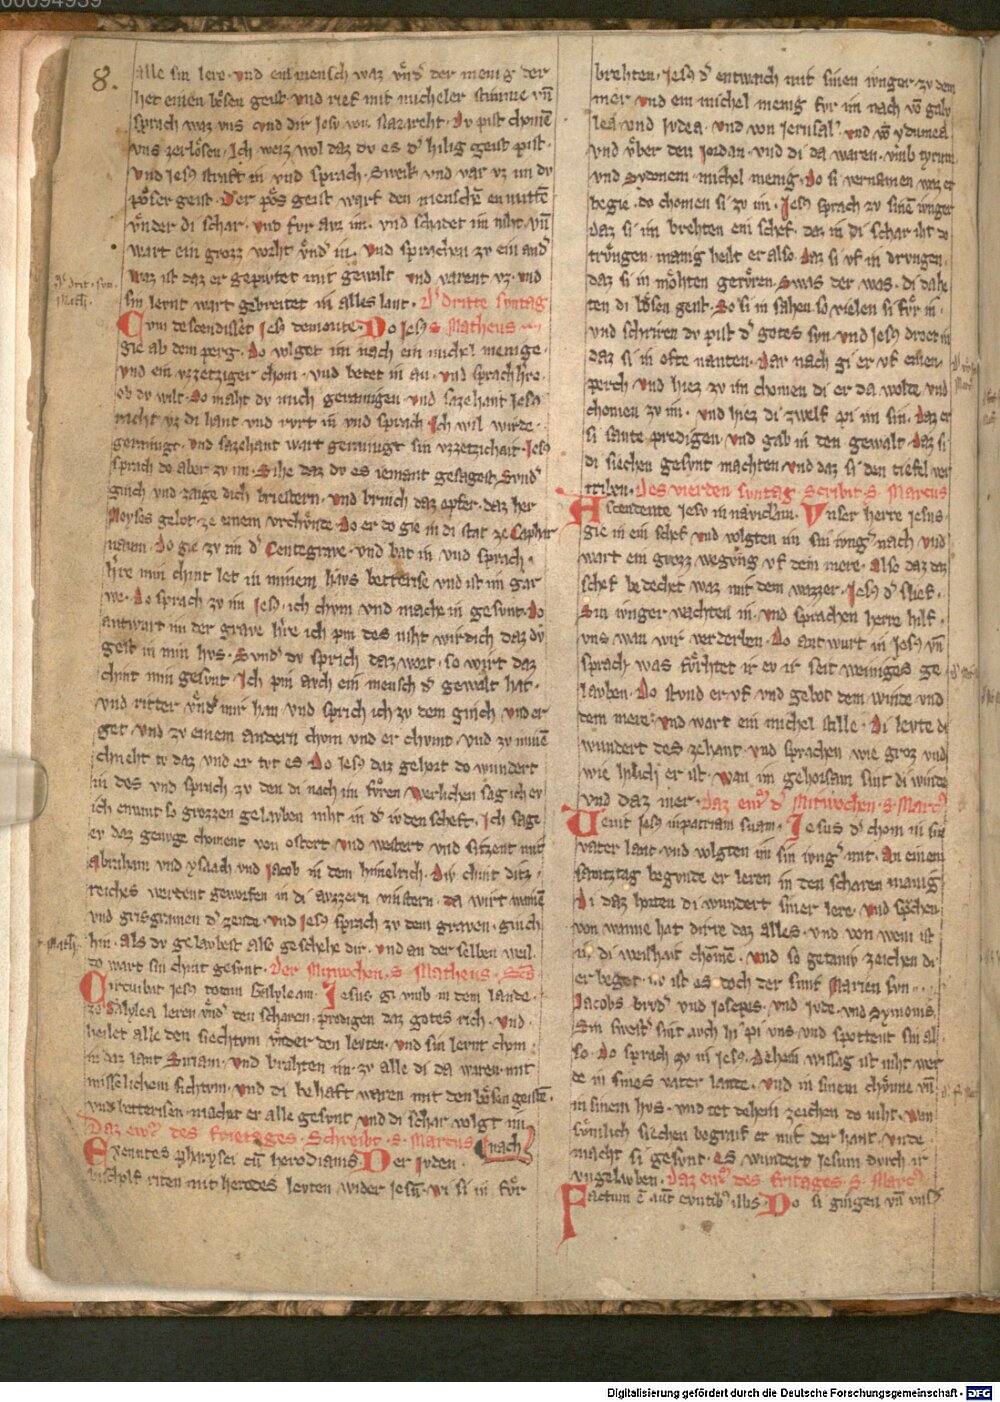 00094939
8.
alle sin lere · vnd ein mensch waz vnd̾ der menig der
het einen bo̊sen geist vnd rief mit micheler stimme vn̄
sprach waz vns vnd dir Jesu von Nazareht · Dv pist chomē
vns zerlo̊sen · Ich weiz wol daz dv es d̾ hilig geist pist ·
vnd Jesꝰ straft in vnd sprach · Sweik vnd var vz im dv
po̊ser geist · Der po̊s geist warf den menschē en mittē
vnder di schar · vnd fvr avz im · vnd schadet im niht · vn̄
wart ein grozz vorht vnd̾ in · vnd sprachen zv ein and̾
waz ist daz er gepivtet mit gewalt vnd varent vz · vnd
sin lernt wart gebreitet in alles lant · D̾ dritte svntag
Cvm descendisset Jesꝰ demonte · Do Jesꝰ S Matheus
gie ab dem perg · do volget im nach ein michel menige ·
vnd ein vzzetziger chom · vnd betet in an · vnd sprach h̾re ·
ob dv wilt · do maht dv mich gerainigen · vnd sazehant Jesꝰ
racht vz di hant vnd rvrt in vnd sprach Ich wil wirde
gerainigt · vnd sazehant wart gerainigt sin vzzetzichait · Jesꝰ
sprach do aber zv im · Sihe daz dv es iemant gesagest Svnd̾
ginch vnd zaige dich briestern · vnd brinch daz opfer · daz her
Moyses gelot · ze einem vrchvnde · do er do gie in di stat ze Caphar
naum · do gie zv im d̾ Centegrave · vnd bat in vnd sprach ·
h̾re min chint let in minem havs betterise vnd ist im gar
we · Do sprach zv im Jesꝰ · ich chvm vnd mache in gesvnt · Do
antwart im der grave h̾re ich pin des niht wirdich daz dv
gest in min hvs · Svnd̾ dv sprich daz wort · so wirt daz
chint min gesvnt Ich pin avch ein mensch d̾ gewalt hat ·
vnd ritter vnd̾ mir han vnd sprich ich zv dem ginch vnd er
get · vnd zv einem andern chvm vnd er chvmt · vnd zv minē
chneht tv daz vnd er tvt es Do Jesꝰ daz gehort do wundert
in des vnd sprach zv den di nach im fvren werlichen sag ich ev
ich envant so grozzen gelavben niht in d̾ ivdenscheft · Ich sage
ev daz genvge choment von ostert vnd westert vnd sitzent mit
Abraham vnd ysaach vnd Jacob in dem himelrich · Div chint ditz
reiches werdent geworfen in di avzzern vinstern · da wirt wainē
vnd grisgrimen d̾ zende · vnd Jesꝰ sprach zv dem graven · ginch
hin · als dv gelavbest also geschehe dir · vnd an der selben weil
do wart sin chint gesvnt · Der Mitwochen · S Matheus ·
Circuibat Jesꝰ totam Galyleam · Jesus gi vmb in dem lande
ze Galylea leren vnd̾ den scharen · predigen daz gotes rich · vnd
heilet alle den siechtvm vnder den levten · vnd sin lernt chom
in daz lant Siriam · vnd brahten im zv alle di da waren mit
misselichem sichtvm · vnd di behaft waren mit den bo̊sen geistē ·
vnd betterisen machet er alle gesvnt vnd di schar volgt im
Daz ew̄ des freitages · Schreibt · S · Marcus nach
Exeuntes pharysei cū herodianis Der Jvden
bischolf riten mit herodes levten wider Jesū · wi si in fvr
brehten · Jesꝰ d̾ entwaich mit sinen ivnger zv dem
mer vnd ein michel menig fvr im nach vō galy
lea vnd Jvdea · vnd von Jerusal̄ vnd vō ydumea
vnd vber den Jordan · vnd di da waren · vmb tyrum
vnd Sydonem · michel menig · do si vernamen waz er
begie · do chomen si zv im · Jesꝰ sprach zv sinē ivnger
daz si im brehten ein schef · daz in di schar iht do
trvngen · manig heilt er also · daz si vf in drvngen ·
daz si in mo̊hten gerv̊ren · Swas der was · di da he
ten di bo̊sen geist · So si in sahen so vielen si fvr in ·
vnd schriren dv pist d̾ gotes svn vnd Jesꝰ droet in
daz si in ofte nanten · dar nach gi er vf einen
perch vnd hiez zv im chomen di er da wolte vnd
chomen zv im · vnd hiez di zwelf pi im sin · daz er
si sante predigen · vnd gab in den gewalt · daz si
di siechen gesvnt machten · vnd daz si den tiefel ver
triben · Des vierden svntag Scribit · S · Marcus
Ascendente Jesv in naviclam · Vnser herre Jesus ·
gie in ein schef vnd volgten im sin ivng̾ nach vnd
wart ein grozz wegvng vf dem mere · also daz daz
schef bedechet waz mit dem wazzer · Jesꝰ d̾ slief ·
Sin ivnger wachten in · vnd sprachen herre hilf ·
vns wan wir verderben · Do antwurt in Jesꝰ vn̄
sprach was fvrhtet ir ev ir seit weniges ge
lavben · Do stvnd er vf vnd gebot dem winde vnd
dem mere · vnd wart ein michel stille · Di levte di
wundert des zehant · vnd sprachen wie groz vnd
wie hilich er ist · wan im gehorsam sint di winde
vnd daz mer · Daz ew̄ d̾ Mitwochen · S · Marc̾
Venit Jesꝰ in patriam suam · Jesus d̾ chom in sin
vater lant · vnd volgten im sin ivng̾ mit · An einem
samtztag begvnde er leren in den scharen manig
Di daz horten di wundert siner lere · vnd sp̄chen
von wanne hat dirre daz alles · vnd von wem ist
im di weisheit chomē · vnd so getaniv zeichen di
er beget · wo ist es doch der smit Marien svn ·
Jacobs brvd̾ vnd Josepis · vnd Jvde · vnd Symonis
Sin swest̾ sint avch hi pi vns · vnd spottent sin al
so · Do sprach zv in Jesꝰ · Dehein wissag ist niht wer
de in sines vater lante · vnd in sinem chvnne vn̄
in sinem hvs · vnd tet dehein zeichen do niht · wen
so̊mlich siechen begraif er mit der hant · vnde
macht si gesvnt · es wundert Jesum dvrch ir
vngelavben · Daz ew̄ des fritages S · Marc̾
Factum ē aut̄ euntibꝰ illis · Do si gingen vn̄ vnsˀ
Digitalisierung gefördert durch die Deutsche Forschungsgemeinschaft - DFG